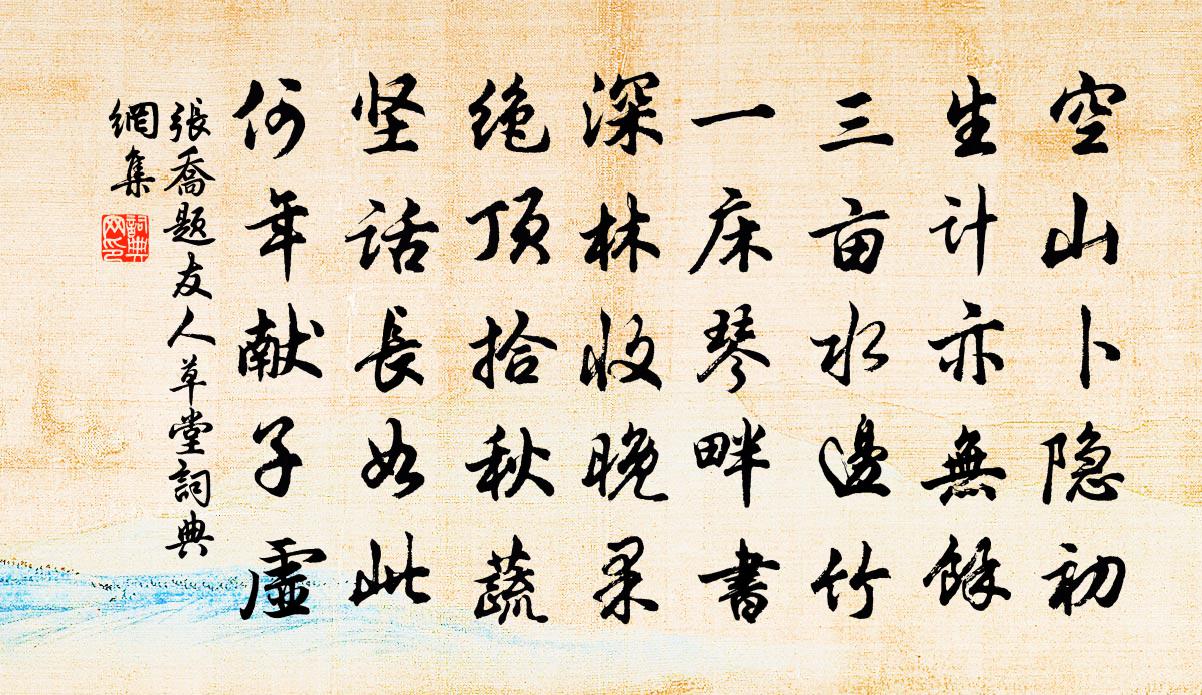 空山卜隐初
生计亦無餘
三亩水邊竹
一床琴畔書
深林收晚果
绝顶拾秋蔬
坚话長如此
何年献子虚
張喬题友人草堂詞典
網集
詞典
网印